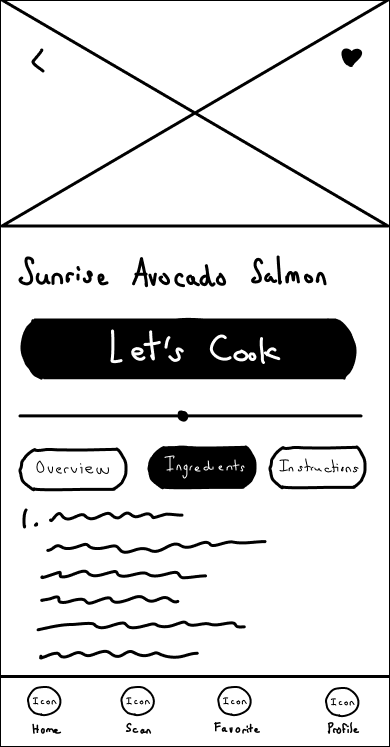 Sunrise Avocado Salmon
Let's Cook
Overview Ingredients Instructions
1.
Icon Icon Icon Icon
Home Scan Favorite Profile